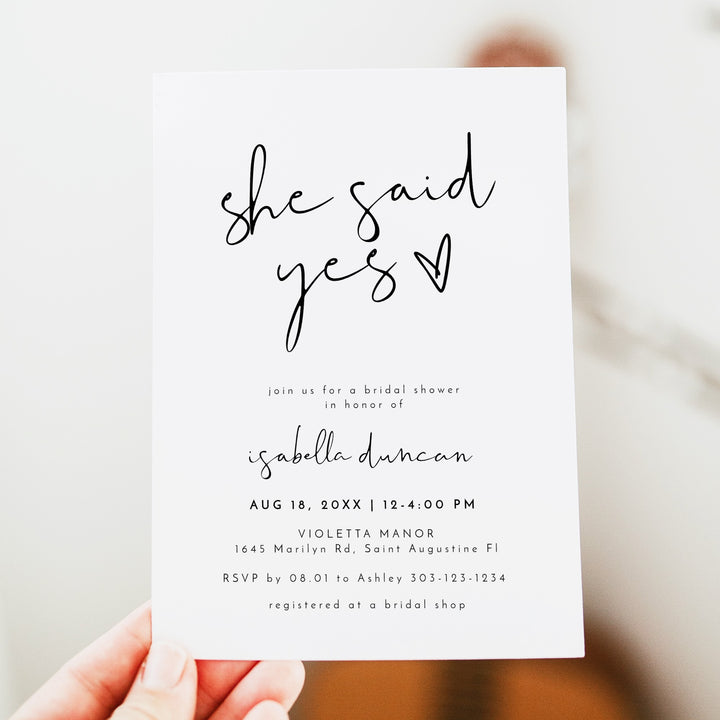 she said
yes
join us for a bridal shower
in honor of
isabella duncan
AUG 18, 20XX | 12-4:00 PM
VIOLETTA MANOR
1645 Marilyn Rd, Saint Augustine Fl
RSVP by 08.01 to Ashley 303-123-1234
registered at a bridal shop